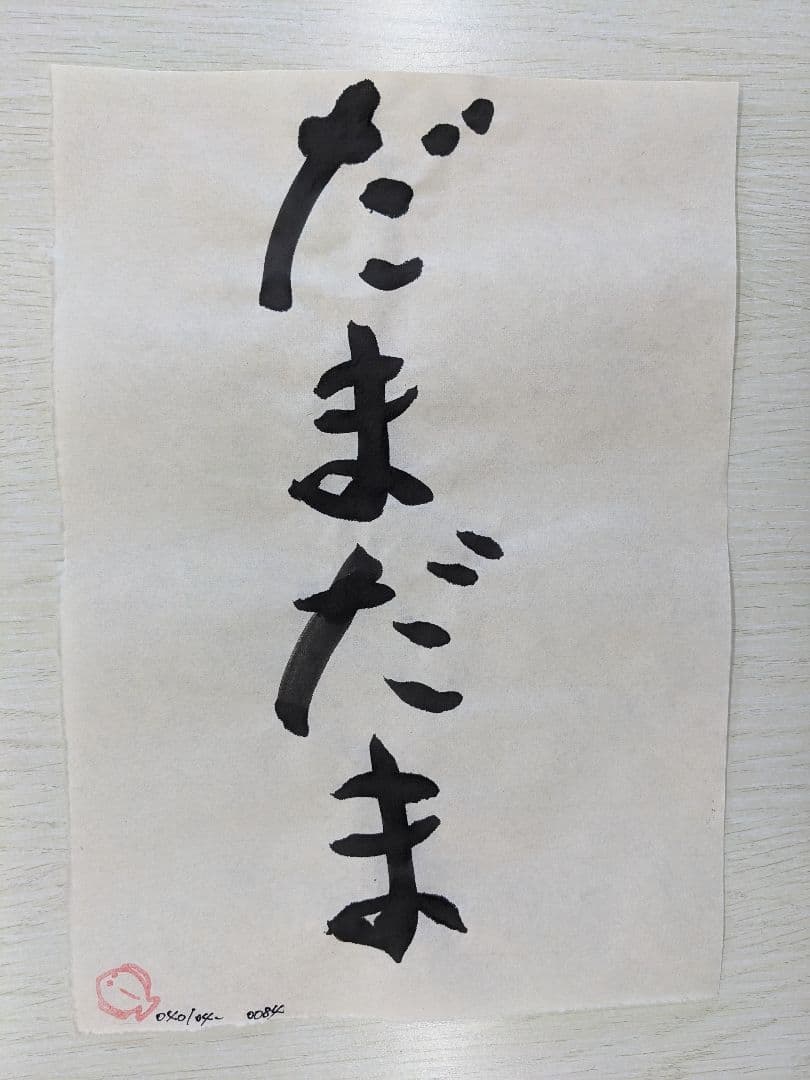 だまだま
040/04- 0084